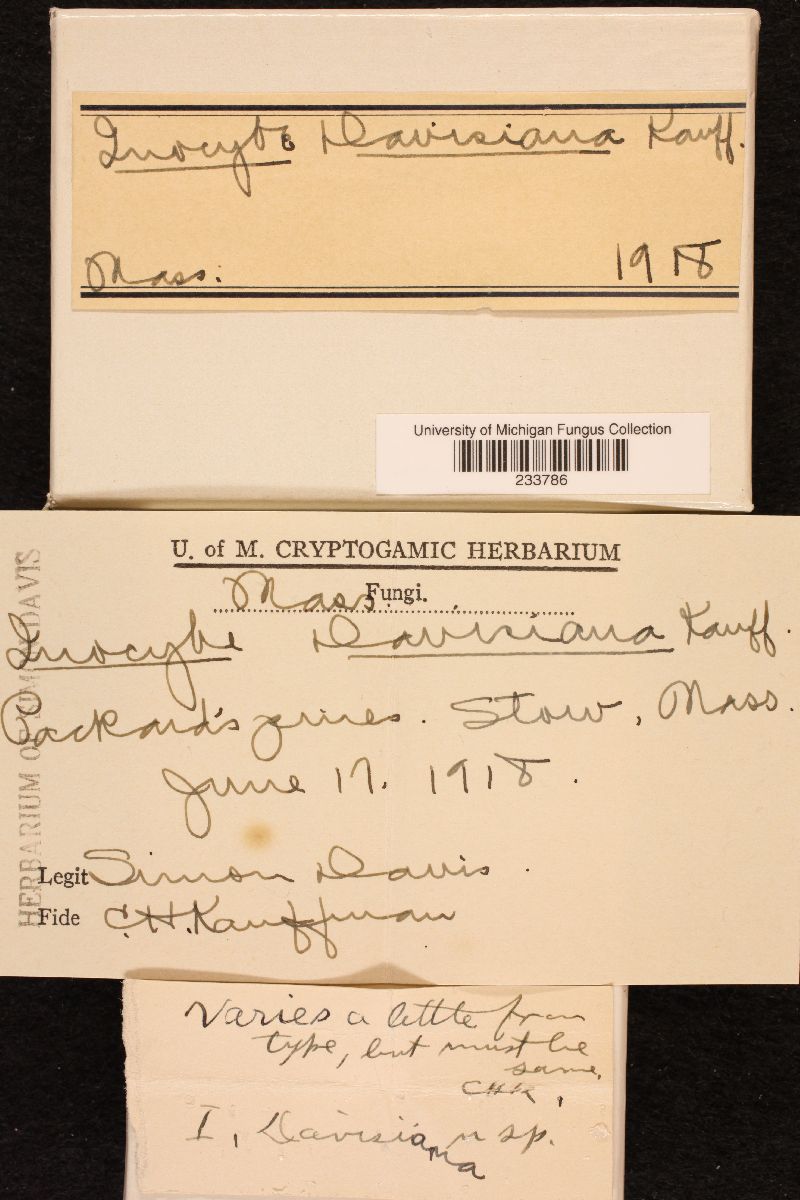 Inocybe Davisiana Kauff.
Mass. 1918
University of Michigan Fungus Collection
233786
HERBARIUM OF SIMON DAVIS
U. of M. CRYPTOGAMIC HERBARIUM
Mass. Fungi.
Inocybe Davisiana Kauff.
Packard's pines. Stow, Mass.
June 17. 1918.
Legit Simon Davis.
Fide C.H. Kauffman
Varies a little from
type, but must be
same.
CHK.
I. Davisiana n sp.